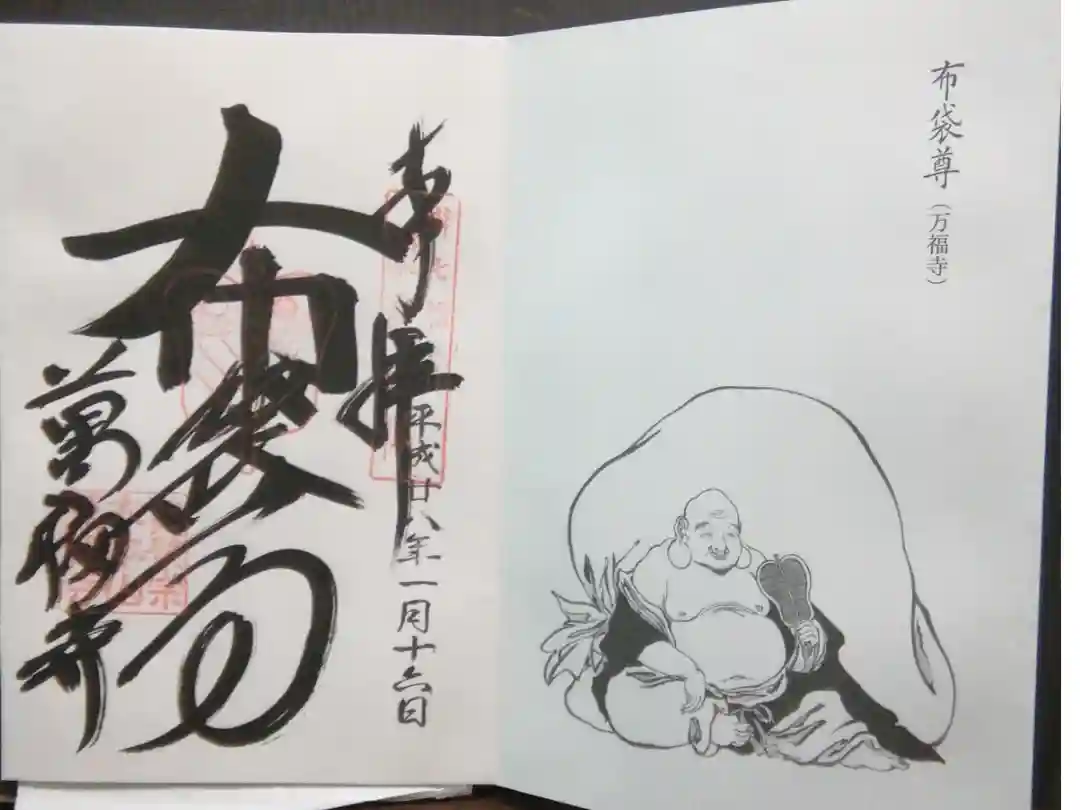 布袋尊（万福寺）
奉拝
平成廿八年一月十六日
布袋尊
萬福寺